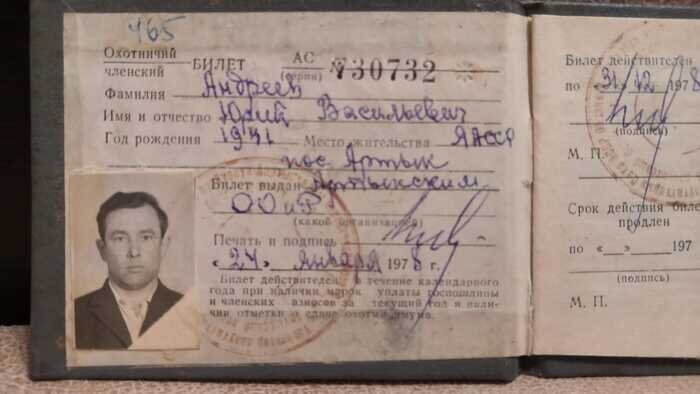 465
Охотничий
членский БИЛЕТ АС 730732
(серия)
Фамилия Андреев
Имя и отчество Юрий Васильевич
Год рождения 1941 Место жительства ЯАССР
пос. Артык
Билет выдан Артыкским
ООиР
(какой организацией)
Печать и подпись
«24» января 1978 г.
Билет действителен в течение календарного
года при наличии марок уплаты госпошлины
и членских взносов за текущий год и нали-
чии отметки о сдаче охотминимума.
Билет действителен
по «31» 12 1978
(подпись)
М. П.
Срок действия биле
продлен
по «__»____197
(подпись)
М. П.